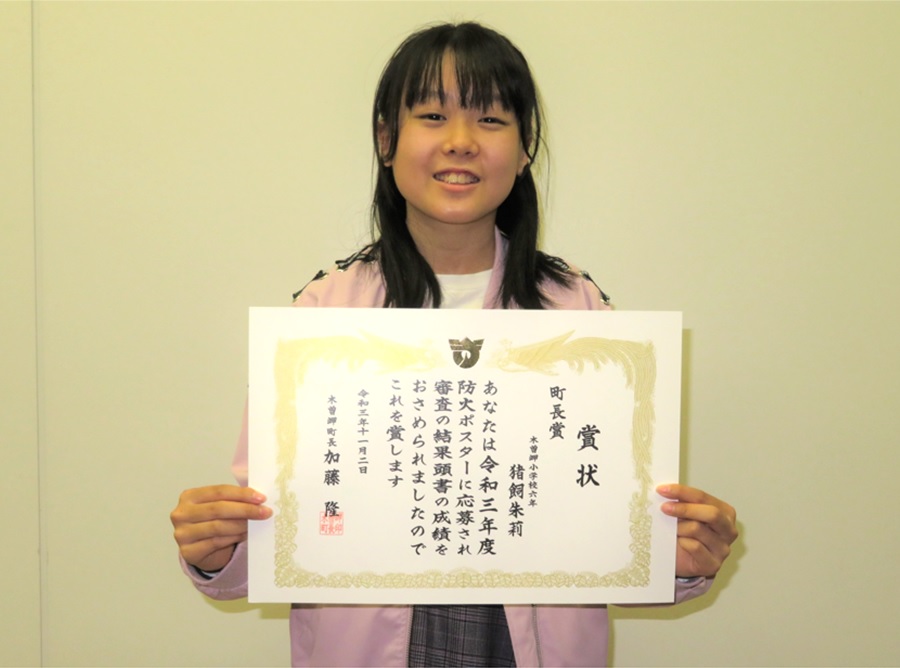 賞状
町長賞
木曽岬小学校六年
猪飼朱莉
あなたは令和三年度
防火ポスターに応募され
審査の結果頭書の成績を
おさめられましたので
これを賞します
令和三年十一月二日
木曽岬町長 加藤 隆